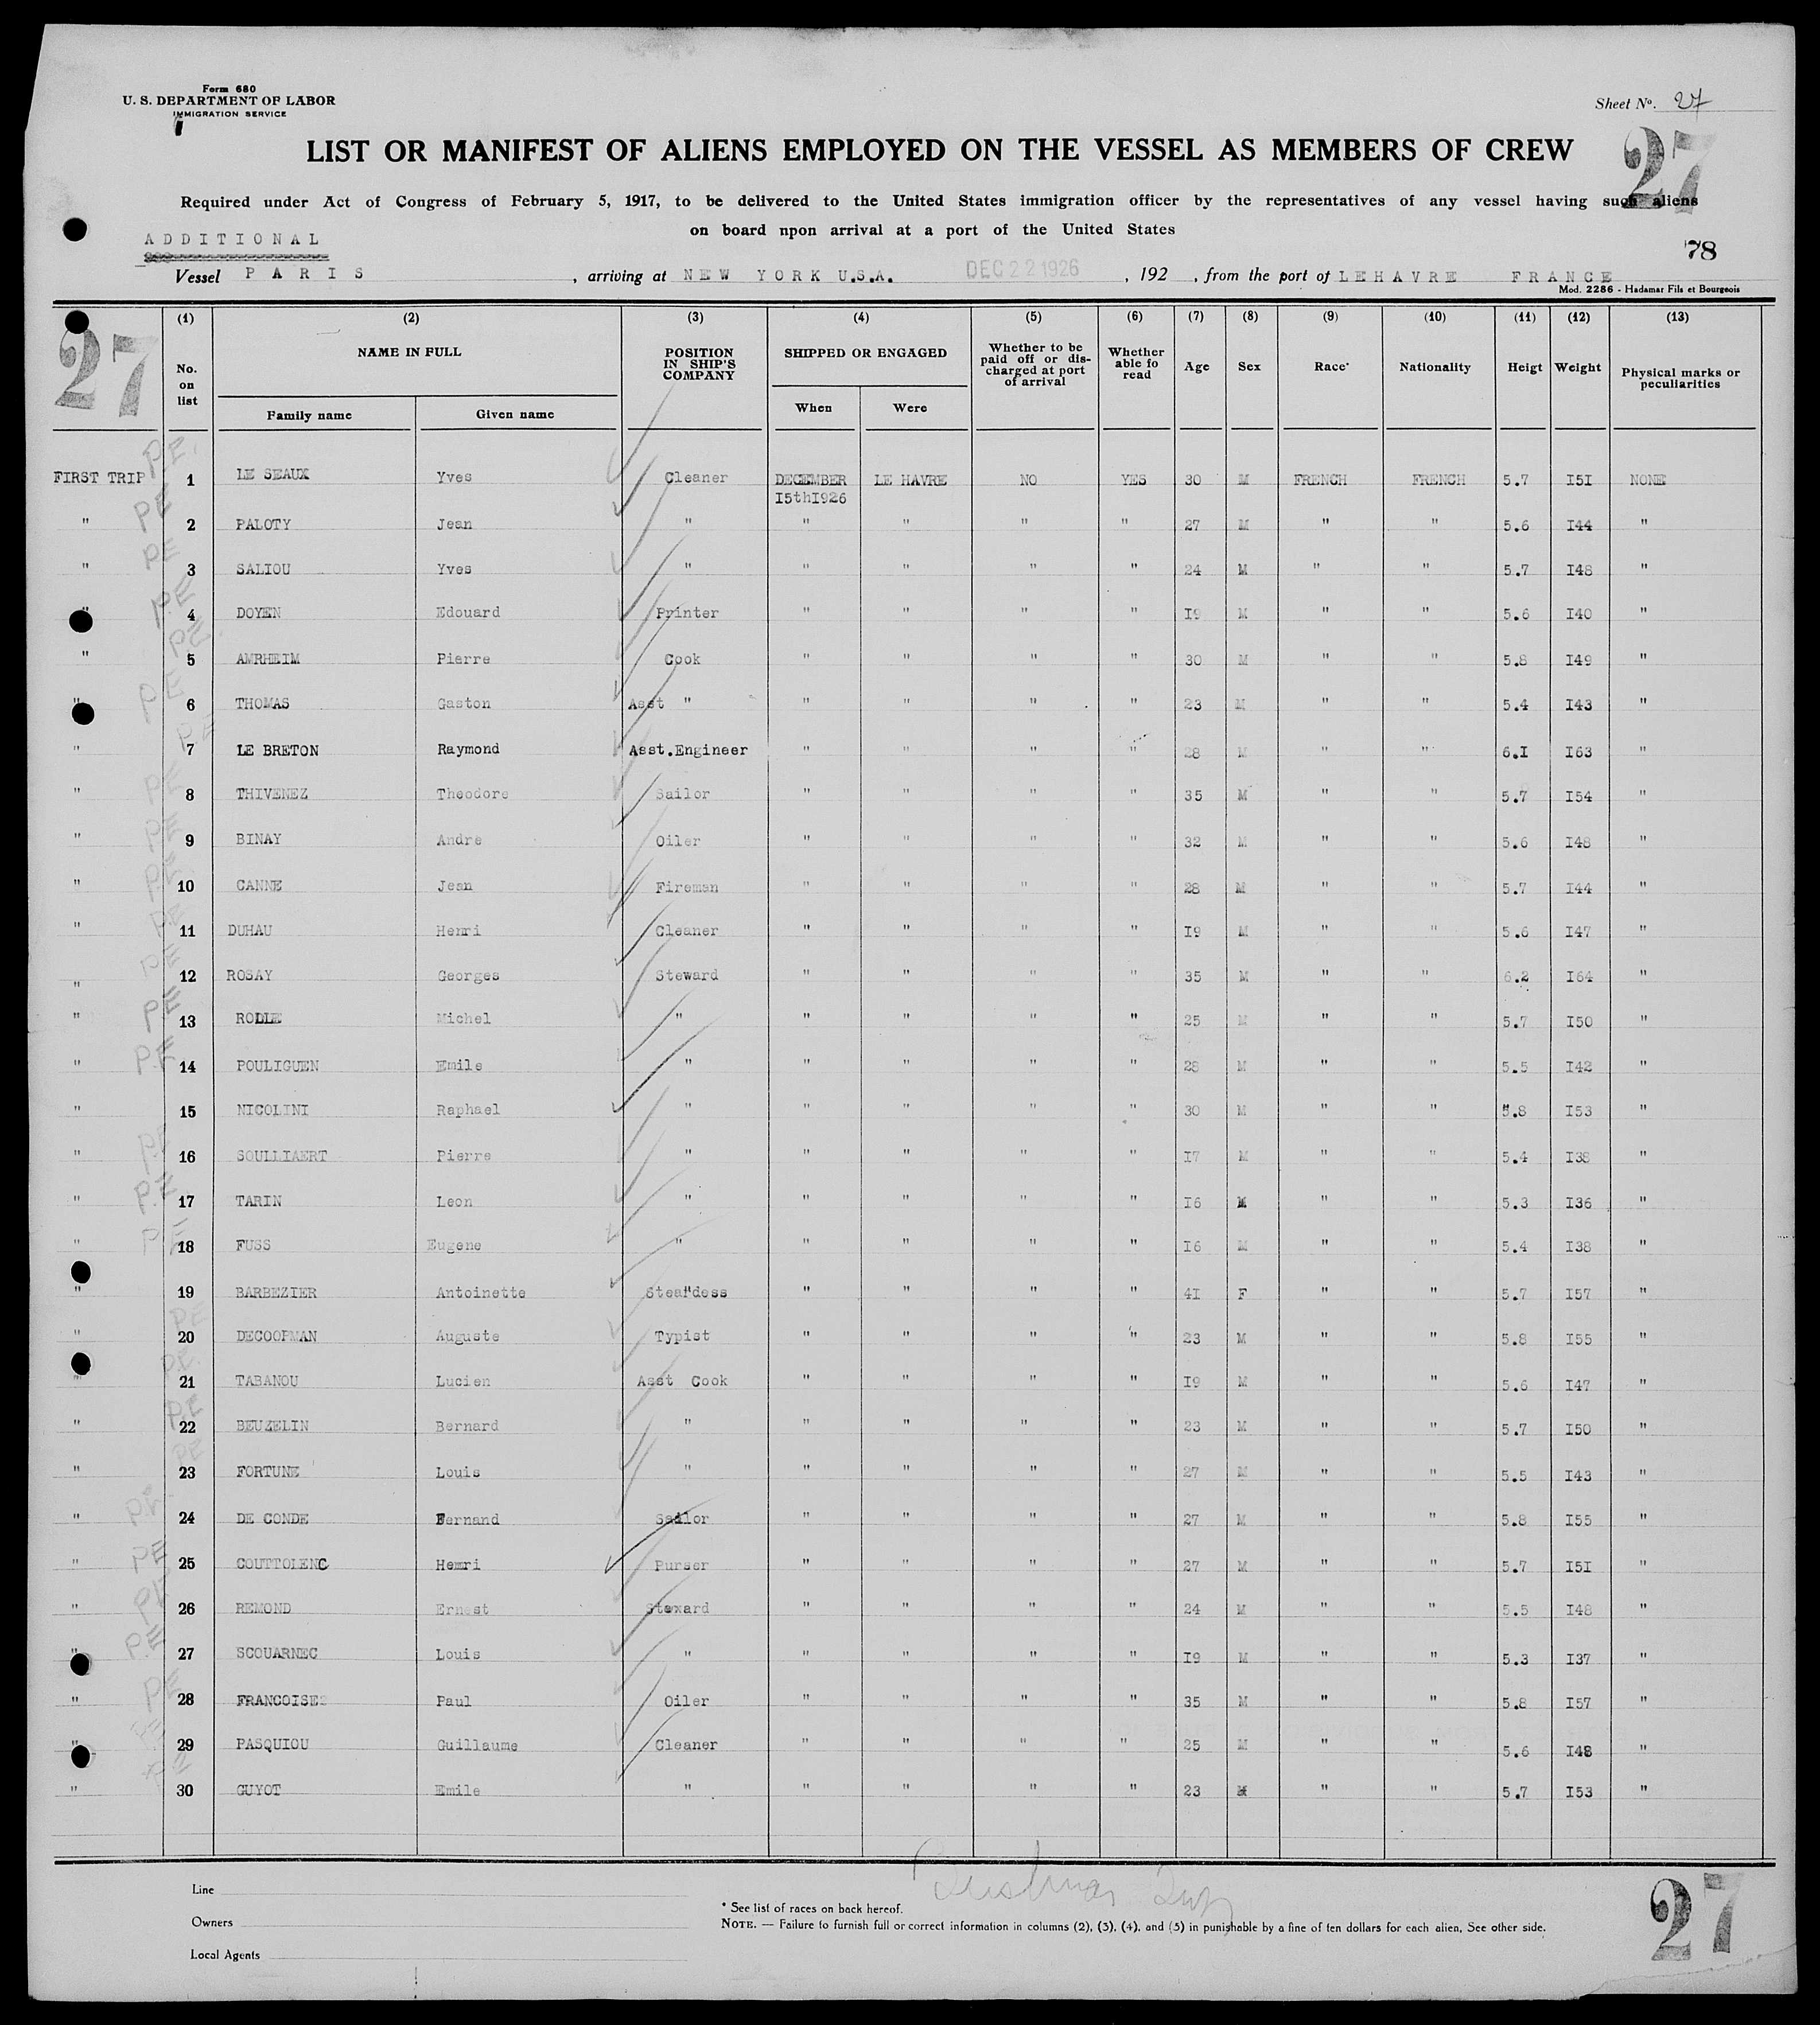 Form 680
U. S. DEPARTMENT OF LABOR
IMMIGRATION SERVICE
Sheet No. 27
27
LIST OR MANIFEST OF ALIENS EMPLOYED ON THE VESSEL AS MEMBERS OF CREW
Required under Act of Congress of February 5, 1917, to be delivered to the United States immigration officer by the representatives of any vessel having such aliens
on board npon arrival at a port of the United States
ADDITIONAL
78
Vessel PARIS, arriving at NEW YORK U.S.A. DEC 22 1926, 192 , from the port of LEHAVRE FRANCE
Mod. 2286 - Hadamar Fils et Bourgeois
27
(1) (2) (3) (4) (5) (6) (7) (8) (9) (10) (11) (12) (13)
No. on list NAME IN FULL POSITION IN SHIP'S COMPANY SHIPPED OR ENGAGED Whether to be paid off or discharged at port of arrival Whether able fo read Age Sex Race* Nationality Heigt Weight Physical marks or peculiarities
Family name Given name When Were
FIRST TRIP P.E. 1 LE SEAUX Yves Cleaner DECEMBER 15th1926 LE HAVRE NO YES 30 M FRENCH FRENCH 5.7 I5I NONE
" PE 2 PALOTY Jean " " " " " 27 M " " 5.6 I44 "
" PE 3 SALIOU Yves " " " " " 24 M " " 5.7 I48 "
" P.E 4 DOYEN Edouard Printer " " " " I9 M " " 5.6 I40 "
" PE 5 AMRHEIM Pierre Cook " " " " 30 M " " 5.8 I49 "
" P.E 6 THOMAS Gaston Asst " " " " " 23 M " " 5.4 I43 "
" PE 7 LE BRETON Raymond Asst.Engineer " " " " 28 M " " 6.I I63 "
" PE 8 THIVENEZ Theodore Sailor " " " " 35 M " " 5.7 I54 "
" PE 9 BINAY Andre Oiler " " " " 32 M " " 5.6 I48 "
" P.E 10 CANNE Jean Fireman " " " " 28 M " " 5.7 I44 "
" PE 11 DUHAU Henri Cleaner " " " " I9 M " " 5.6 I47 "
" PE 12 ROSAY Georges Steward " " " " 35 M " " 6.2 I64 "
" PE 13 ROLLE Michel " " " " " 25 M " " 5.7 I50 "
" P.E 14 POULIGUEN Emile " " " " " 28 M " " 5.5 I42 "
" 15 NICOLINI Raphael " " " " " 30 M " " 5.8 I53 "
" P.E 16 SOULLIAERT Pierre " " " " " I7 M " " 5.4 I38 "
" P.E 17 TARIN Leon " " " " " I6 M " " 5.3 I36 "
" P.E 18 FUSS Eugene " " " " " I6 M " " 5.4 I38 "
" 19 BARBEZIER Antoinette Steardess " " " " 4I F " " 5.7 I57 "
" PE 20 DECOOPMAN Auguste Typist " " " " 23 M " " 5.8 I55 "
" P.E. 21 TABANOU Lucien Asst Cook " " " " I9 M " " 5.6 I47 "
" PE 22 BEUZELIN Bernard " " " " " 23 M " " 5.7 I50 "
" PE 23 FORTUNE Louis " " " " " 27 M " " 5.5 I43 "
" P.E. 24 DE CONDE Fernand Sailor " " " " 27 M " " 5.8 I55 "
" PE 25 COUTTOLENC Henri Purser " " " " 27 M " " 5.7 I5I "
" PE 26 REMOND Ernest Steward " " " " 24 M " " 5.5 I48 "
" P.E 27 SCOUARNEC Louis " " " " " I9 M " " 5.3 I37 "
" PE 28 FRANCOISES Paul Oiler " " " " 35 M " " 5.8 I57 "
" PE 29 PASQUIOU Guillaume Cleaner " " " " 25 M " " 5.6 I48 "
" PE 30 GUYOT Emile " " " " " 23 M " " 5.7 I53 "
Line
Owners
Local Agents
* See list of races on back hereof.
NOTE. — Failure to furnish full or correct information in columns (2), (3), (4), and (5) in punishable by a fine of ten dollars for each alien, See other side.
27